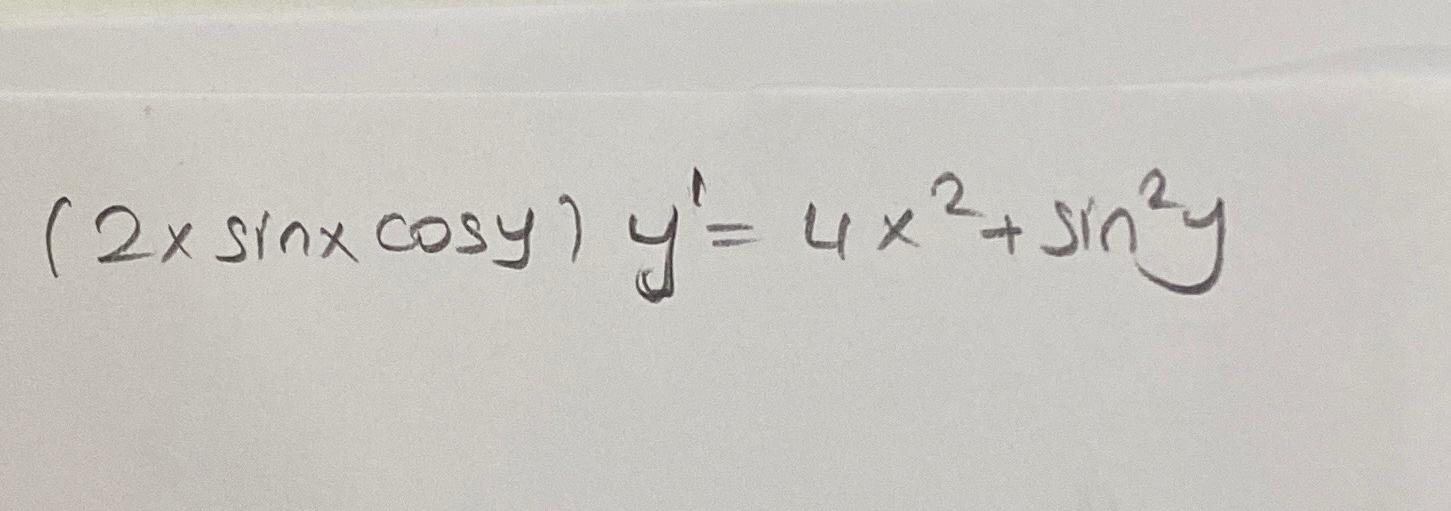 (2x sinx cosy) y' = 4x² + sin²y